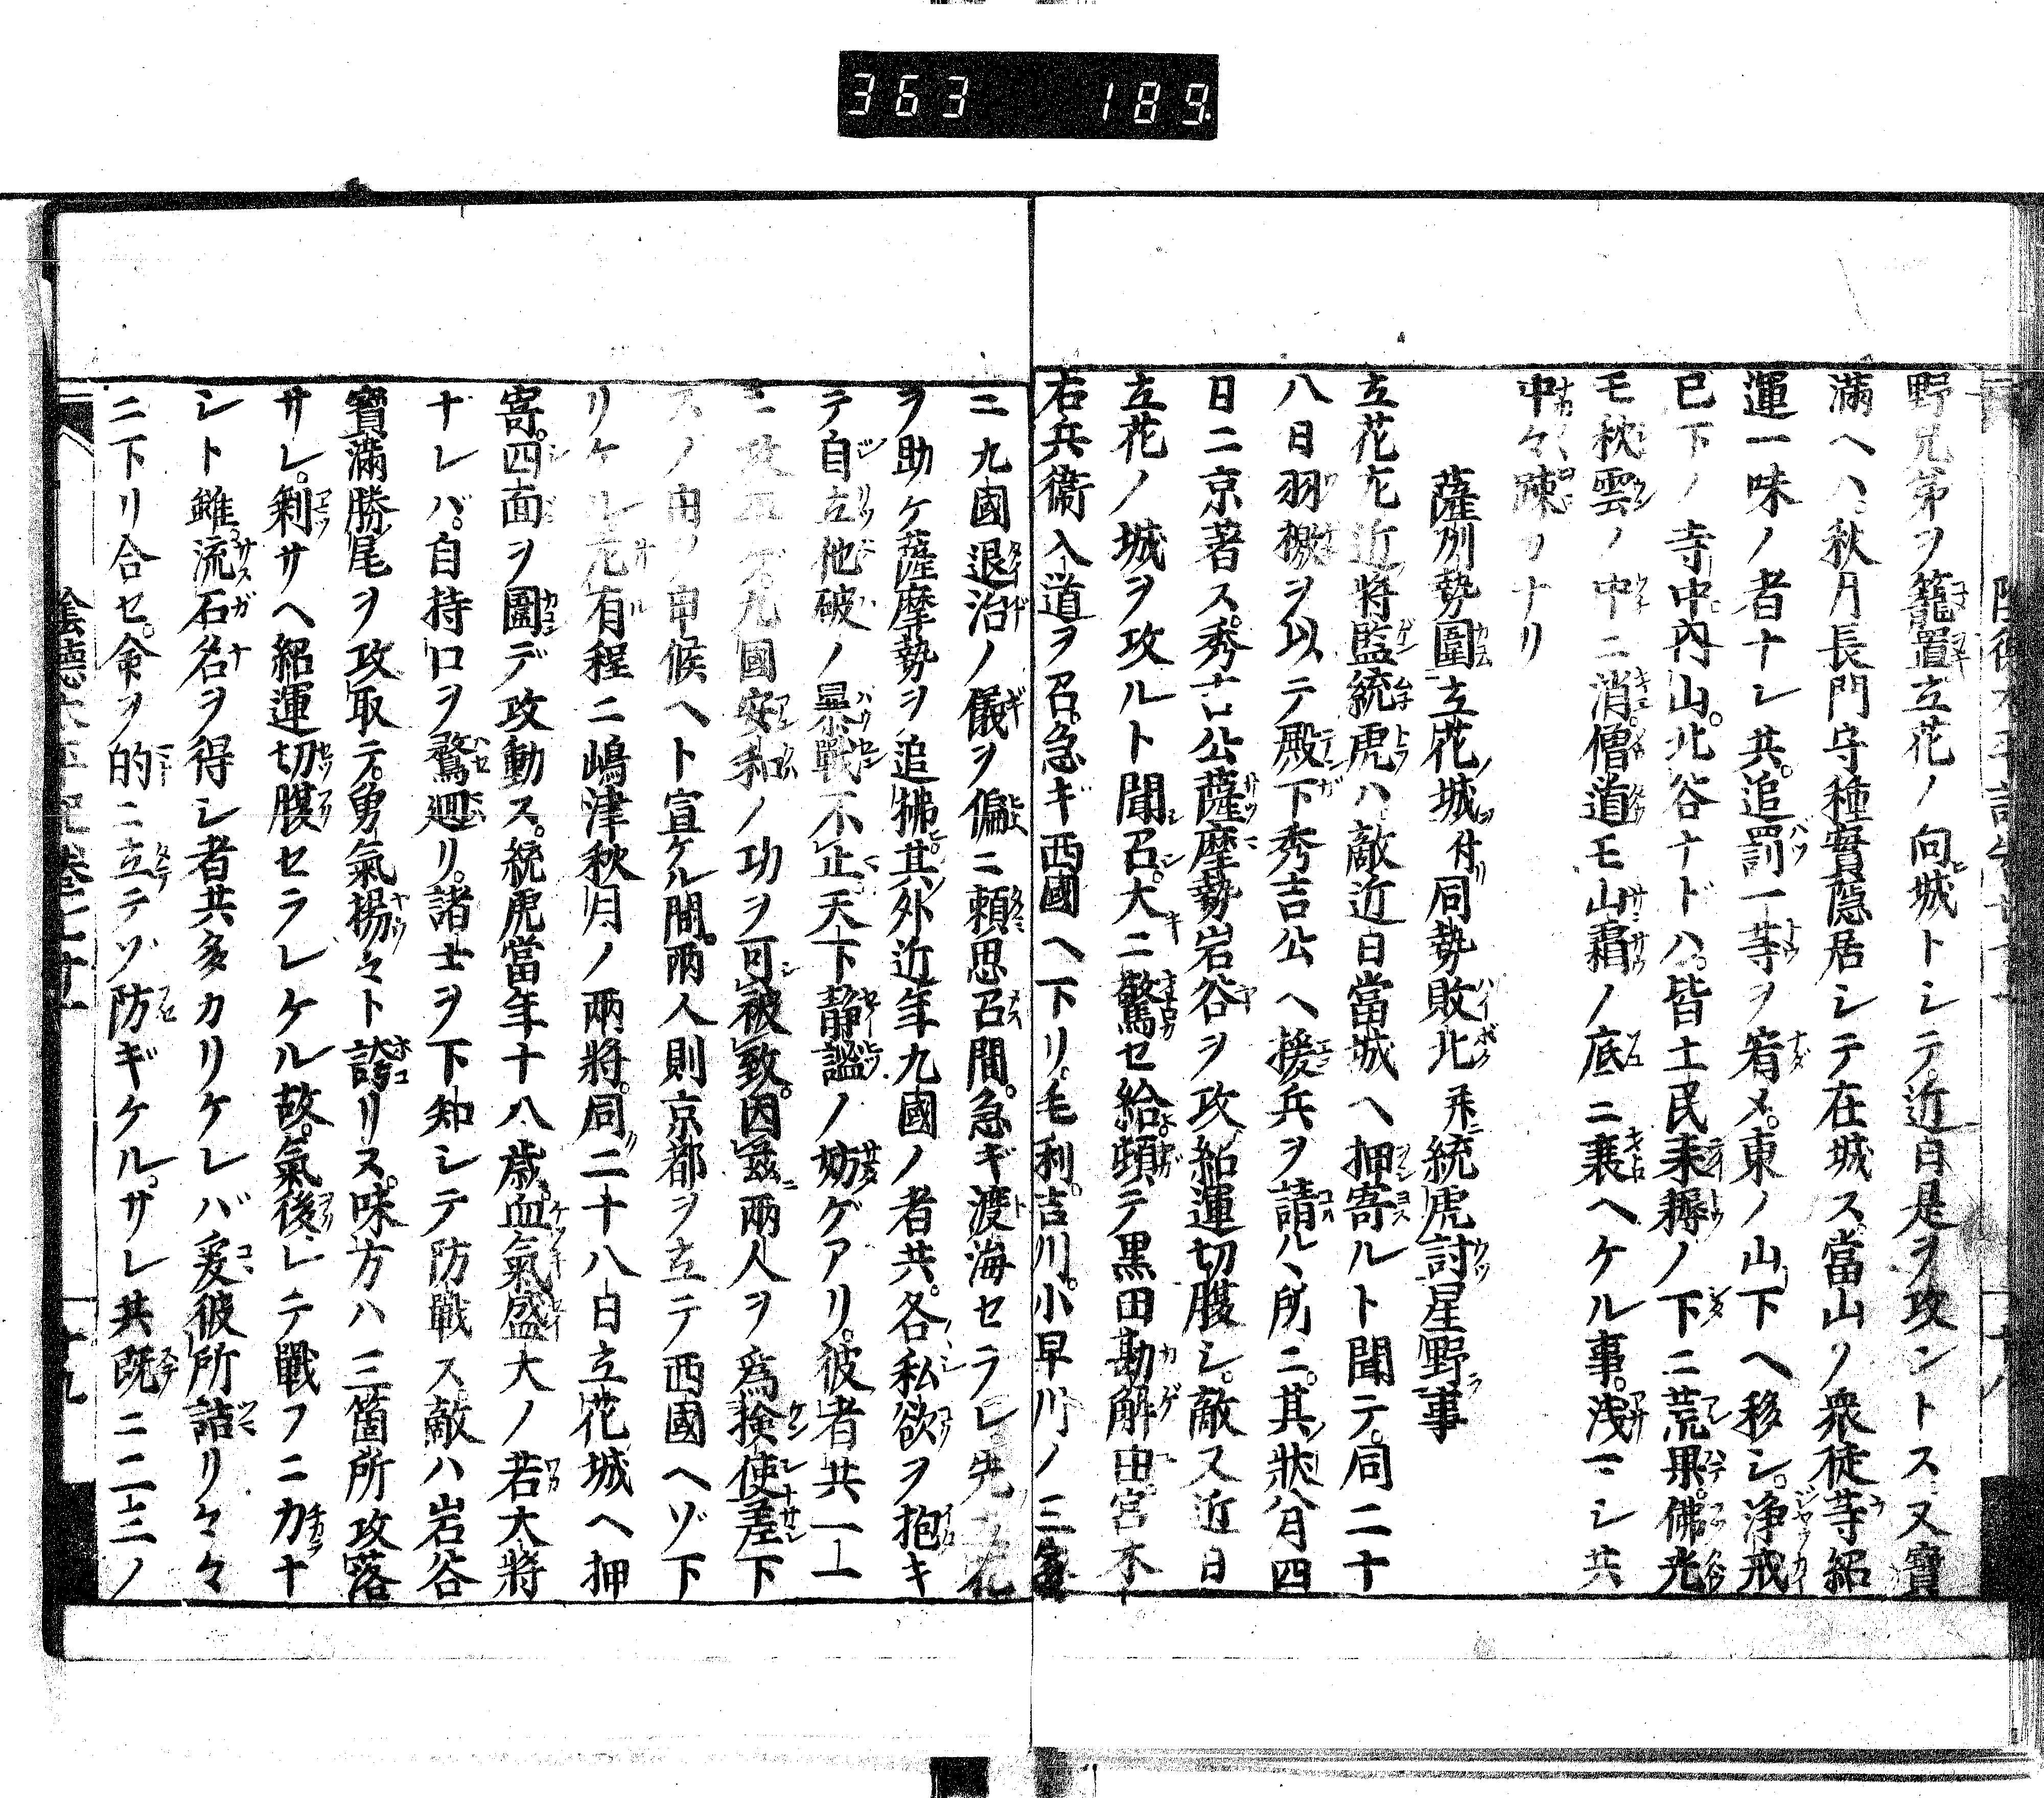 363 189
野兄弟ヲ籠置立花ノ向城トシテ近日是ヲ攻ントス又寳
滿ヘハ秋月長門守種實隱居シテ在城ス當山ノ衆徒等紹
運一味ノ者ナレ共。追罰一等ヲ宥メ。東ノ山下ヘ移シ。淨戒
已下ノ寺中內山。北谷ナドハ。皆土民耒耨ノ下ニ荒果。佛光
モ秋雲ノ中ニ消。僧道モ山霜ノ底ニ衰ヘケル事。淺マシ共
中々疎カナリ
薩州勢圍立花城付同勢敗北幷統虎討星野事
立花左近將監統虎ハ敵近日當城ヘ押寄ルト聞テ。同二十
八日羽檄ヲ以テ殿下秀吉公ヘ援兵ヲ請ルヽ所ニ。其狀八月四
日ニ京著ス。秀吉公薩摩勢岩谷ヲ攻紹運切腹シ。敵又近日
立花ノ城ヲ攻ルト聞召。大ニ驚セ給頓テ黒田勘解由宮木
右兵衞入道ヲ召。急ギ西國ヘ下リ。毛利。吉川。小早川ノ三家
ニ九國退治ノ儀ヲ偏ニ頼思召間。急ギ渡海セラレ先立花
ヲ助ケ薩摩勢ヲ追拂。其外近年九國ノ者共。各私欲ヲ抱キ
テ自立他破ノ暴戰不止天下靜謐ノ妨ゲアリ。彼者共一一
ニ攻平ゲ九國安和ノ功ヲ可被致。因茲兩人ヲ爲撿使差下
スノ由ヲ申候ヘト宣ケル間。兩人則京都ヲ立テ西國ヘゾ下
リケル去有程ニ嶋津秋月ノ兩將。同二十八日立花城ヘ押
寄。四面ヲ圍デ攻動ス。統虎當年十八歳。血氣盛大ノ若大將
ナレバ。自持口ヲ鶩廻リ。諸士ヲ下知シテ防戰ス敵ハ岩谷
寳滿勝尾ヲ攻取テ。勇氣揚々ト誇リス。味方ハ三箇所攻落
サレ。剰サヘ紹運切腹セラレケル故。氣後レテ戰フニ力ナ
シト雖。流石名ヲ得シ者共多カリケレバ爰彼所詰リ々々
ニ下リ合セ。命ヲ的ニ立テゾ防ギケル。サレ共既ニ二三ノ